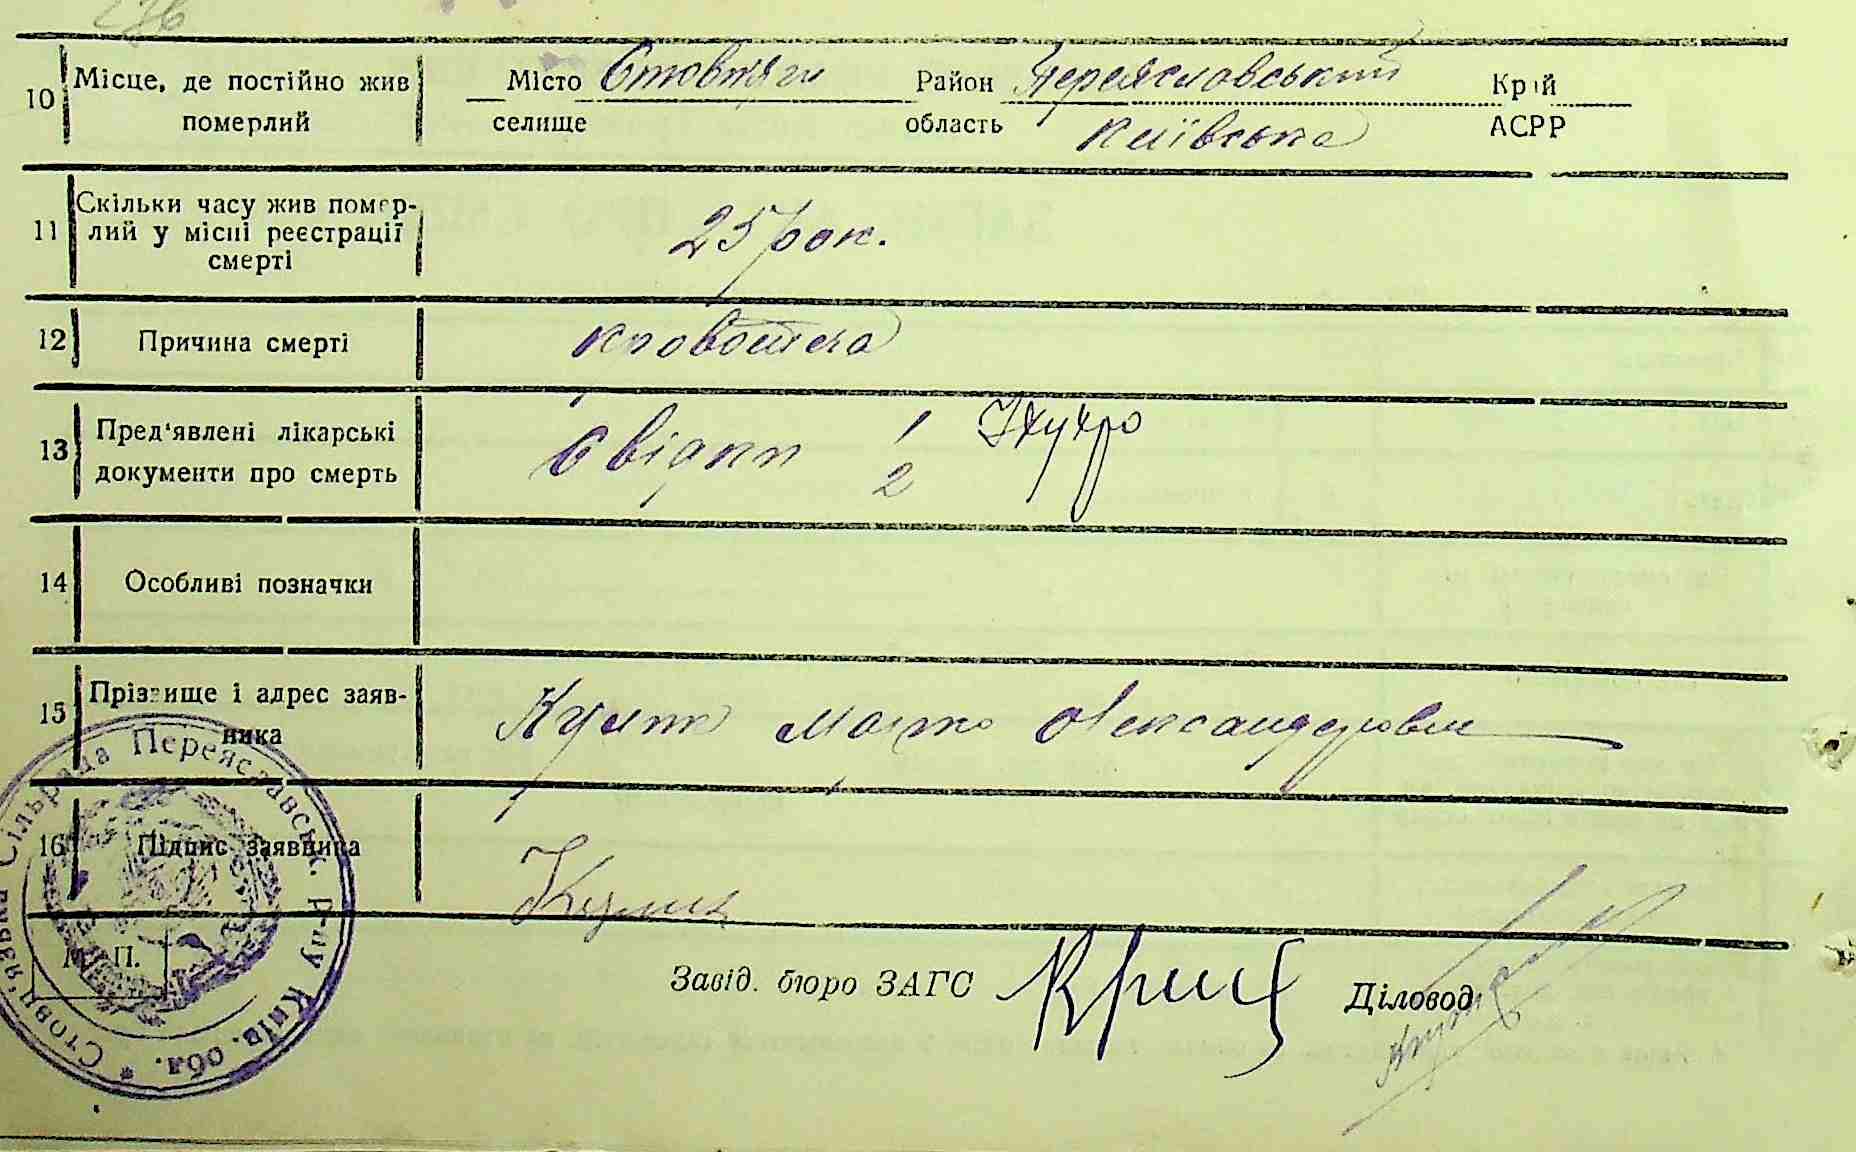 276
10 Місце, де постійно жив померлий
Місто Стовпяги Район Переяславський Край
селище область Київська АСРР
11 Скільки часу жив помер-
лий у місці реєстрації
смерті
25 рок.
12 Причина смерті кровотеча
13 Пред'явлені лікарські
документи про смерть
Свідки 1
2
14 Особливі позначки
15 Прізвище і адрес заяв-
ника
Олександрови
16 Підпис заявника Кулик
М. П.
Завід. бюро ЗАГС Діловод
Стовп'язька Сільрада Переяславськ. р-ну Київ. обл. *